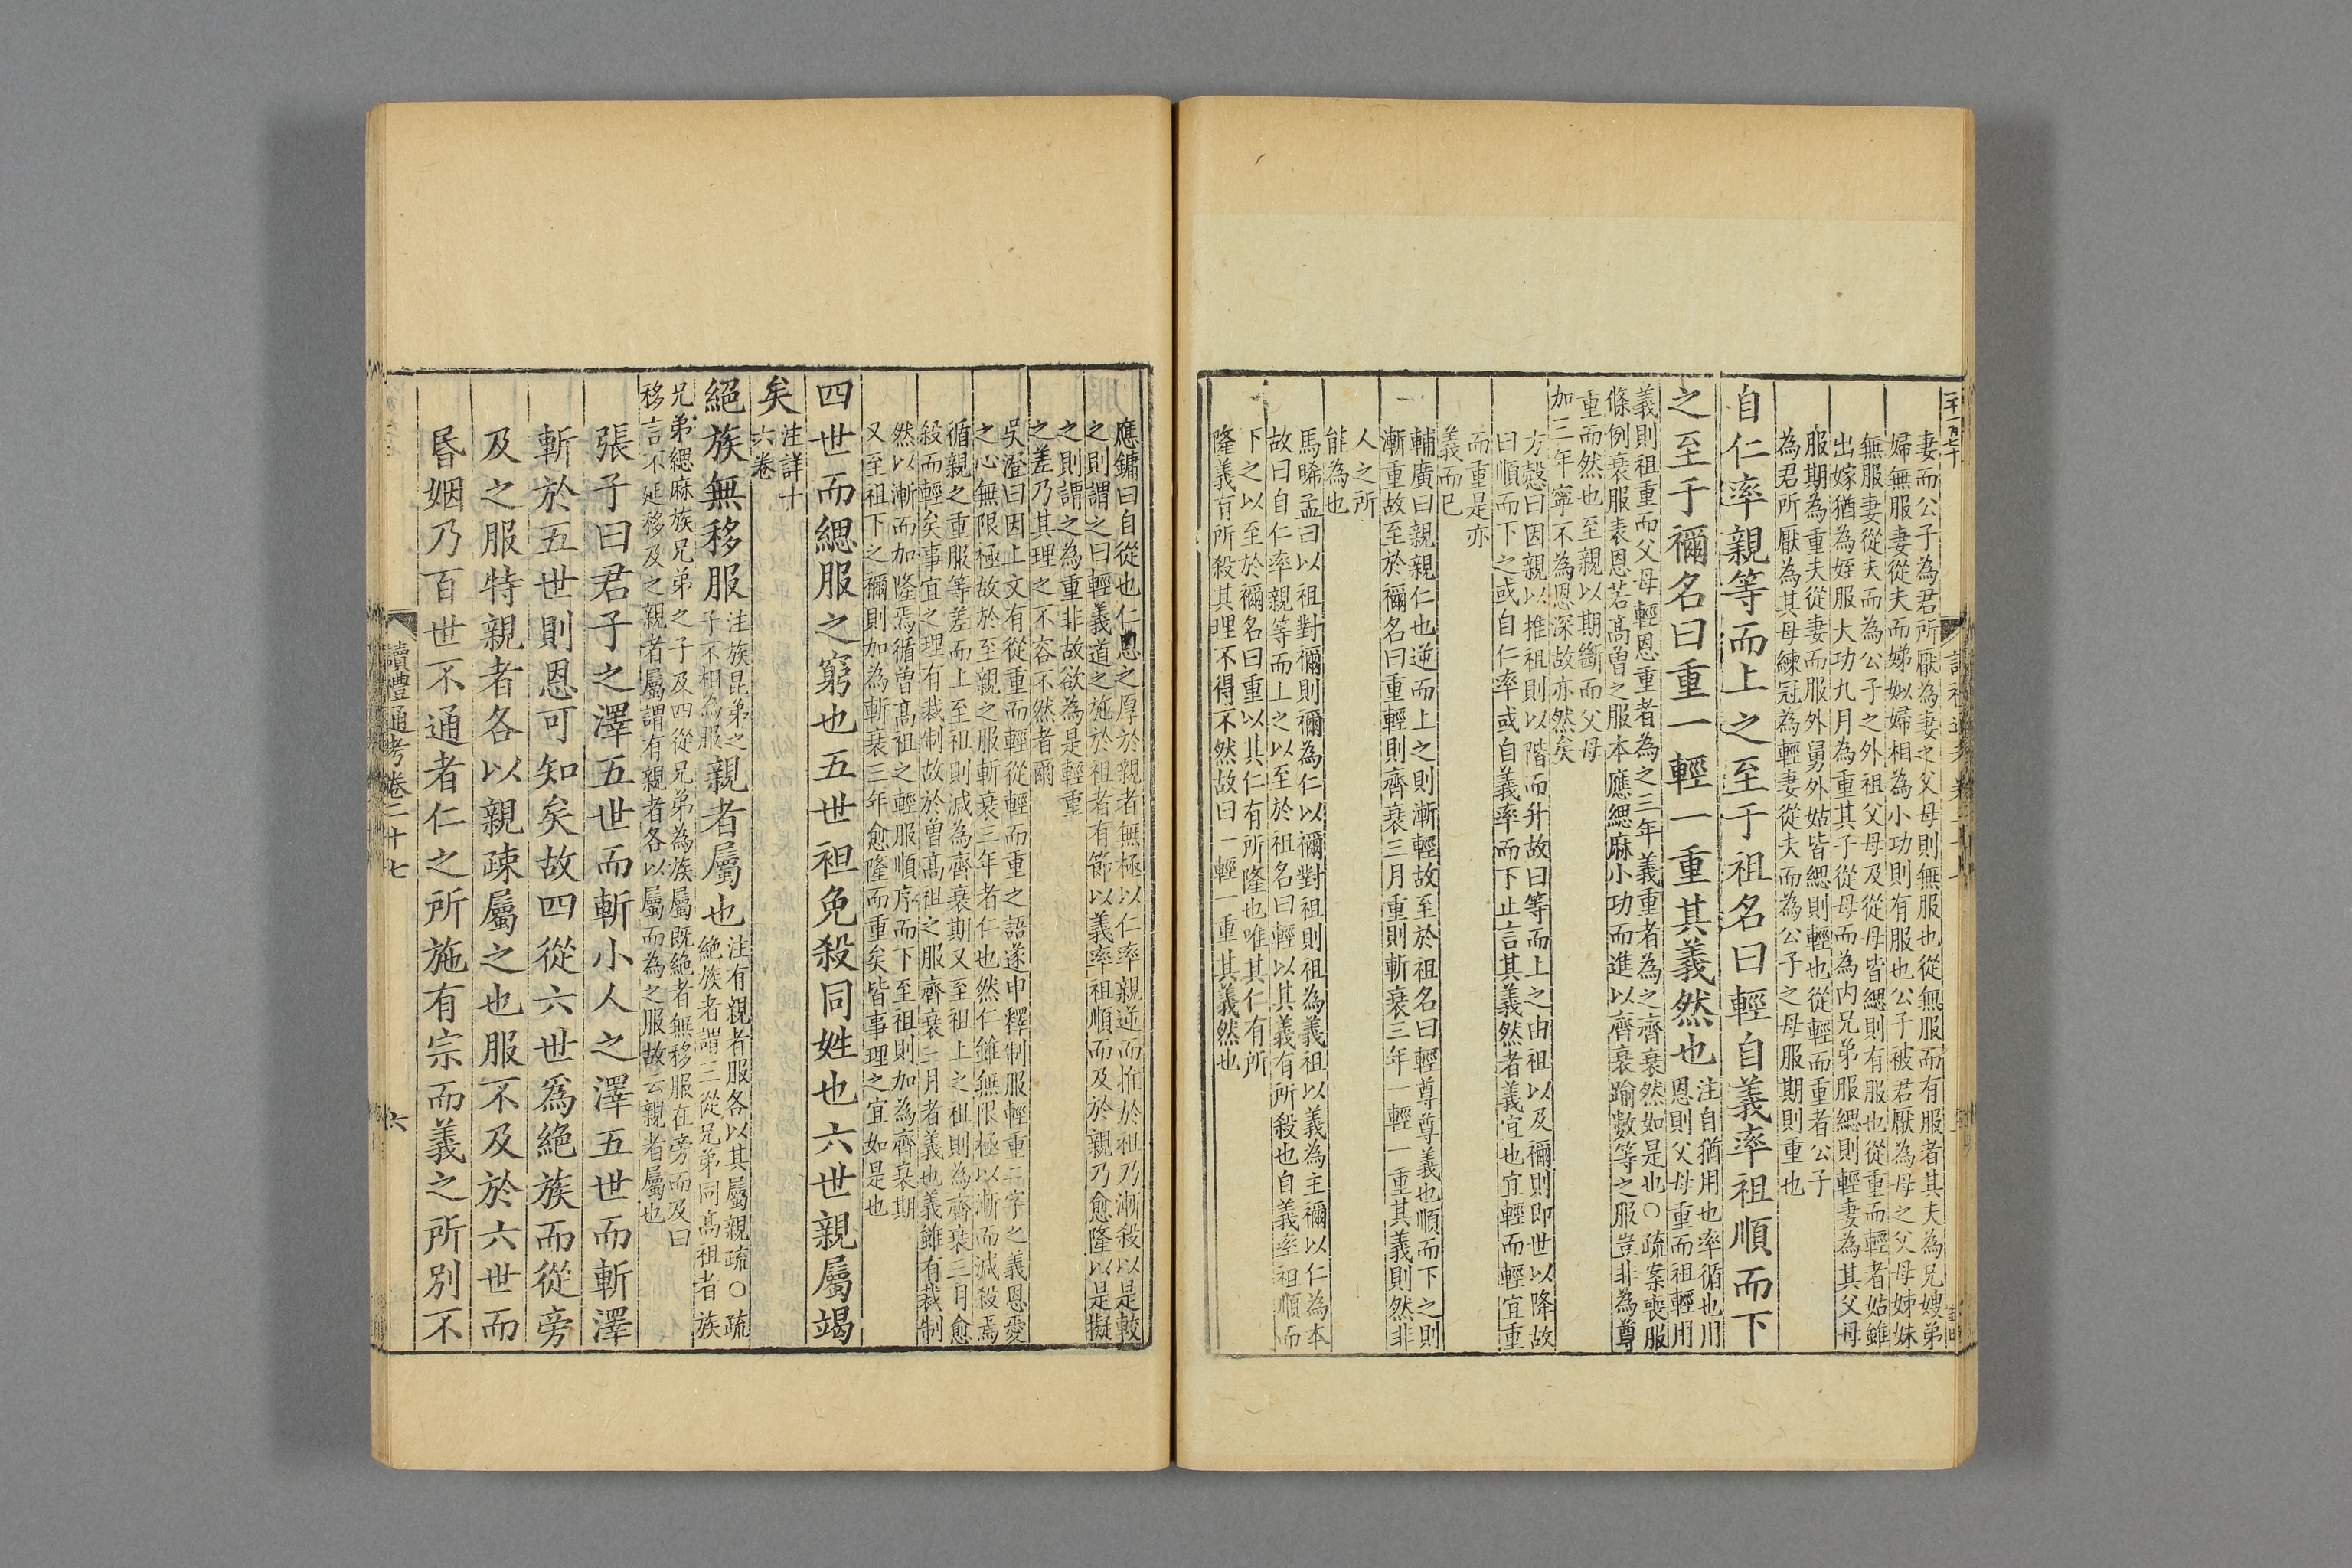 妻而公子為君所厭為妻之父母則無服也從無服而有服者其夫為兄嫂弟
婦無服妻從夫而娣姒婦相為小功則有服也公子被君厭為母之父母姊妹
無服妻從夫而為公子之外祖父母及從母皆緦則有服也從重而輕者姑雖
出嫁猶為姪服大功九月為重其子從母而為內兄弟服緦則輕妻為其父母
服期為重夫從妻而服外舅外姑皆緦則輕也從輕而重者公子
為君所厭為其母練冠為輕妻從夫而為公子之母服期則重也
自仁率親等而上之至于祖名曰輕自義率祖順而下
之至于禰名曰重一輕一重其義然也
注自猶用也率循也用
恩則父母重而祖輕用
義則祖重而父母輕恩重者為之三年義重者為之齊衰然如是也○疏案喪服
條例衰服表恩若高曾之服本應緦麻小功而進以齊衰踰數等之服豈非為尊
重而然也至親以期斷而父母
加三年寧不為恩深故亦然矣
方慤曰因親以推祖則以階而升故曰等而上之由祖以及禰則即世以降故
曰順而下之或自仁率或自義率而下止言其義然者義宜也宜輕而輕宜重
而重是亦
義而已
輔廣曰親親仁也逆而上之則漸輕故至於祖名曰輕尊尊義也順而下之則
漸重故至於禰名曰重輕則齊衰三月重則斬衰三年一輕一重其義則然非
人之所
能為也
馬晞孟曰以祖對禰則禰為仁以禰對祖則祖為義祖以義為主禰以仁為本
故曰自仁率親等而上之以至於祖名曰輕以其義有所殺也自義率祖順而
下之以至於禰名曰重以其仁有所隆也唯其仁有所
隆義有所殺其理不得不然故曰一輕一重其義然也
應鏞曰自從也仁恩之厚於親者無極以仁率親逆而推於祖乃漸殺以是較
之則謂之曰輕義道之施於祖者有節以義率祖順而及於親乃愈隆以是擬
之則謂之為重非故欲為是輕重
之差乃其理之不容不然者爾
吳澄曰因上文有從重而輕從輕而重之語遂申釋制服輕重二字之義恩愛
之心無限極故於至親之服斬衰三年者仁也然仁雖無限極以漸而減殺焉
循親之重服等差而上至祖則減為齊衰期又至祖上之祖則為齊衰三月愈
殺而輕矣事宜之理有裁制故於曾高祖之服齊衰三月者義也義雖有裁制
然以漸而加隆焉循曾高祖之輕服順序而下至祖則加為齊衰期
又至祖下之禰則加為斬衰三年愈隆而重矣皆事理之宜如是也
四世而緦服之窮也五世袒免殺同姓也六世親屬竭
矣
注詳十
六卷
絕族無移服
注族昆弟之
子不相為服
親者屬也
注有親者服各以其屬親疏○疏
絕族者謂三從兄弟同高祖者族
兄弟緦麻族兄弟之子及四從兄弟為族屬既絕者無移服在旁而及曰
移言不延移及之親者屬謂有親者各以屬而為之服故云親者屬也
張子曰君子之澤五世而斬小人之澤五世而斬澤
斬於五世則恩可知矣故四從六世為絕族而從旁
及之服特親者各以親疎屬之也服不及於六世而
昏姻乃百世不通者仁之所施有宗而義之所別不
讀禮通考卷二十七
六